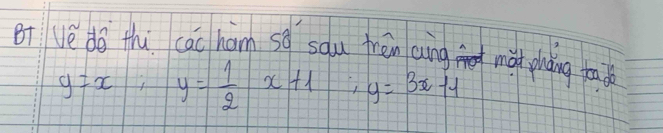 BT Vẽ đồ thị các hàm số sau trên cùng một mặt phẳng toạ độ
y = x ; y = 1/2 x + 1 ; y = 3x + 1